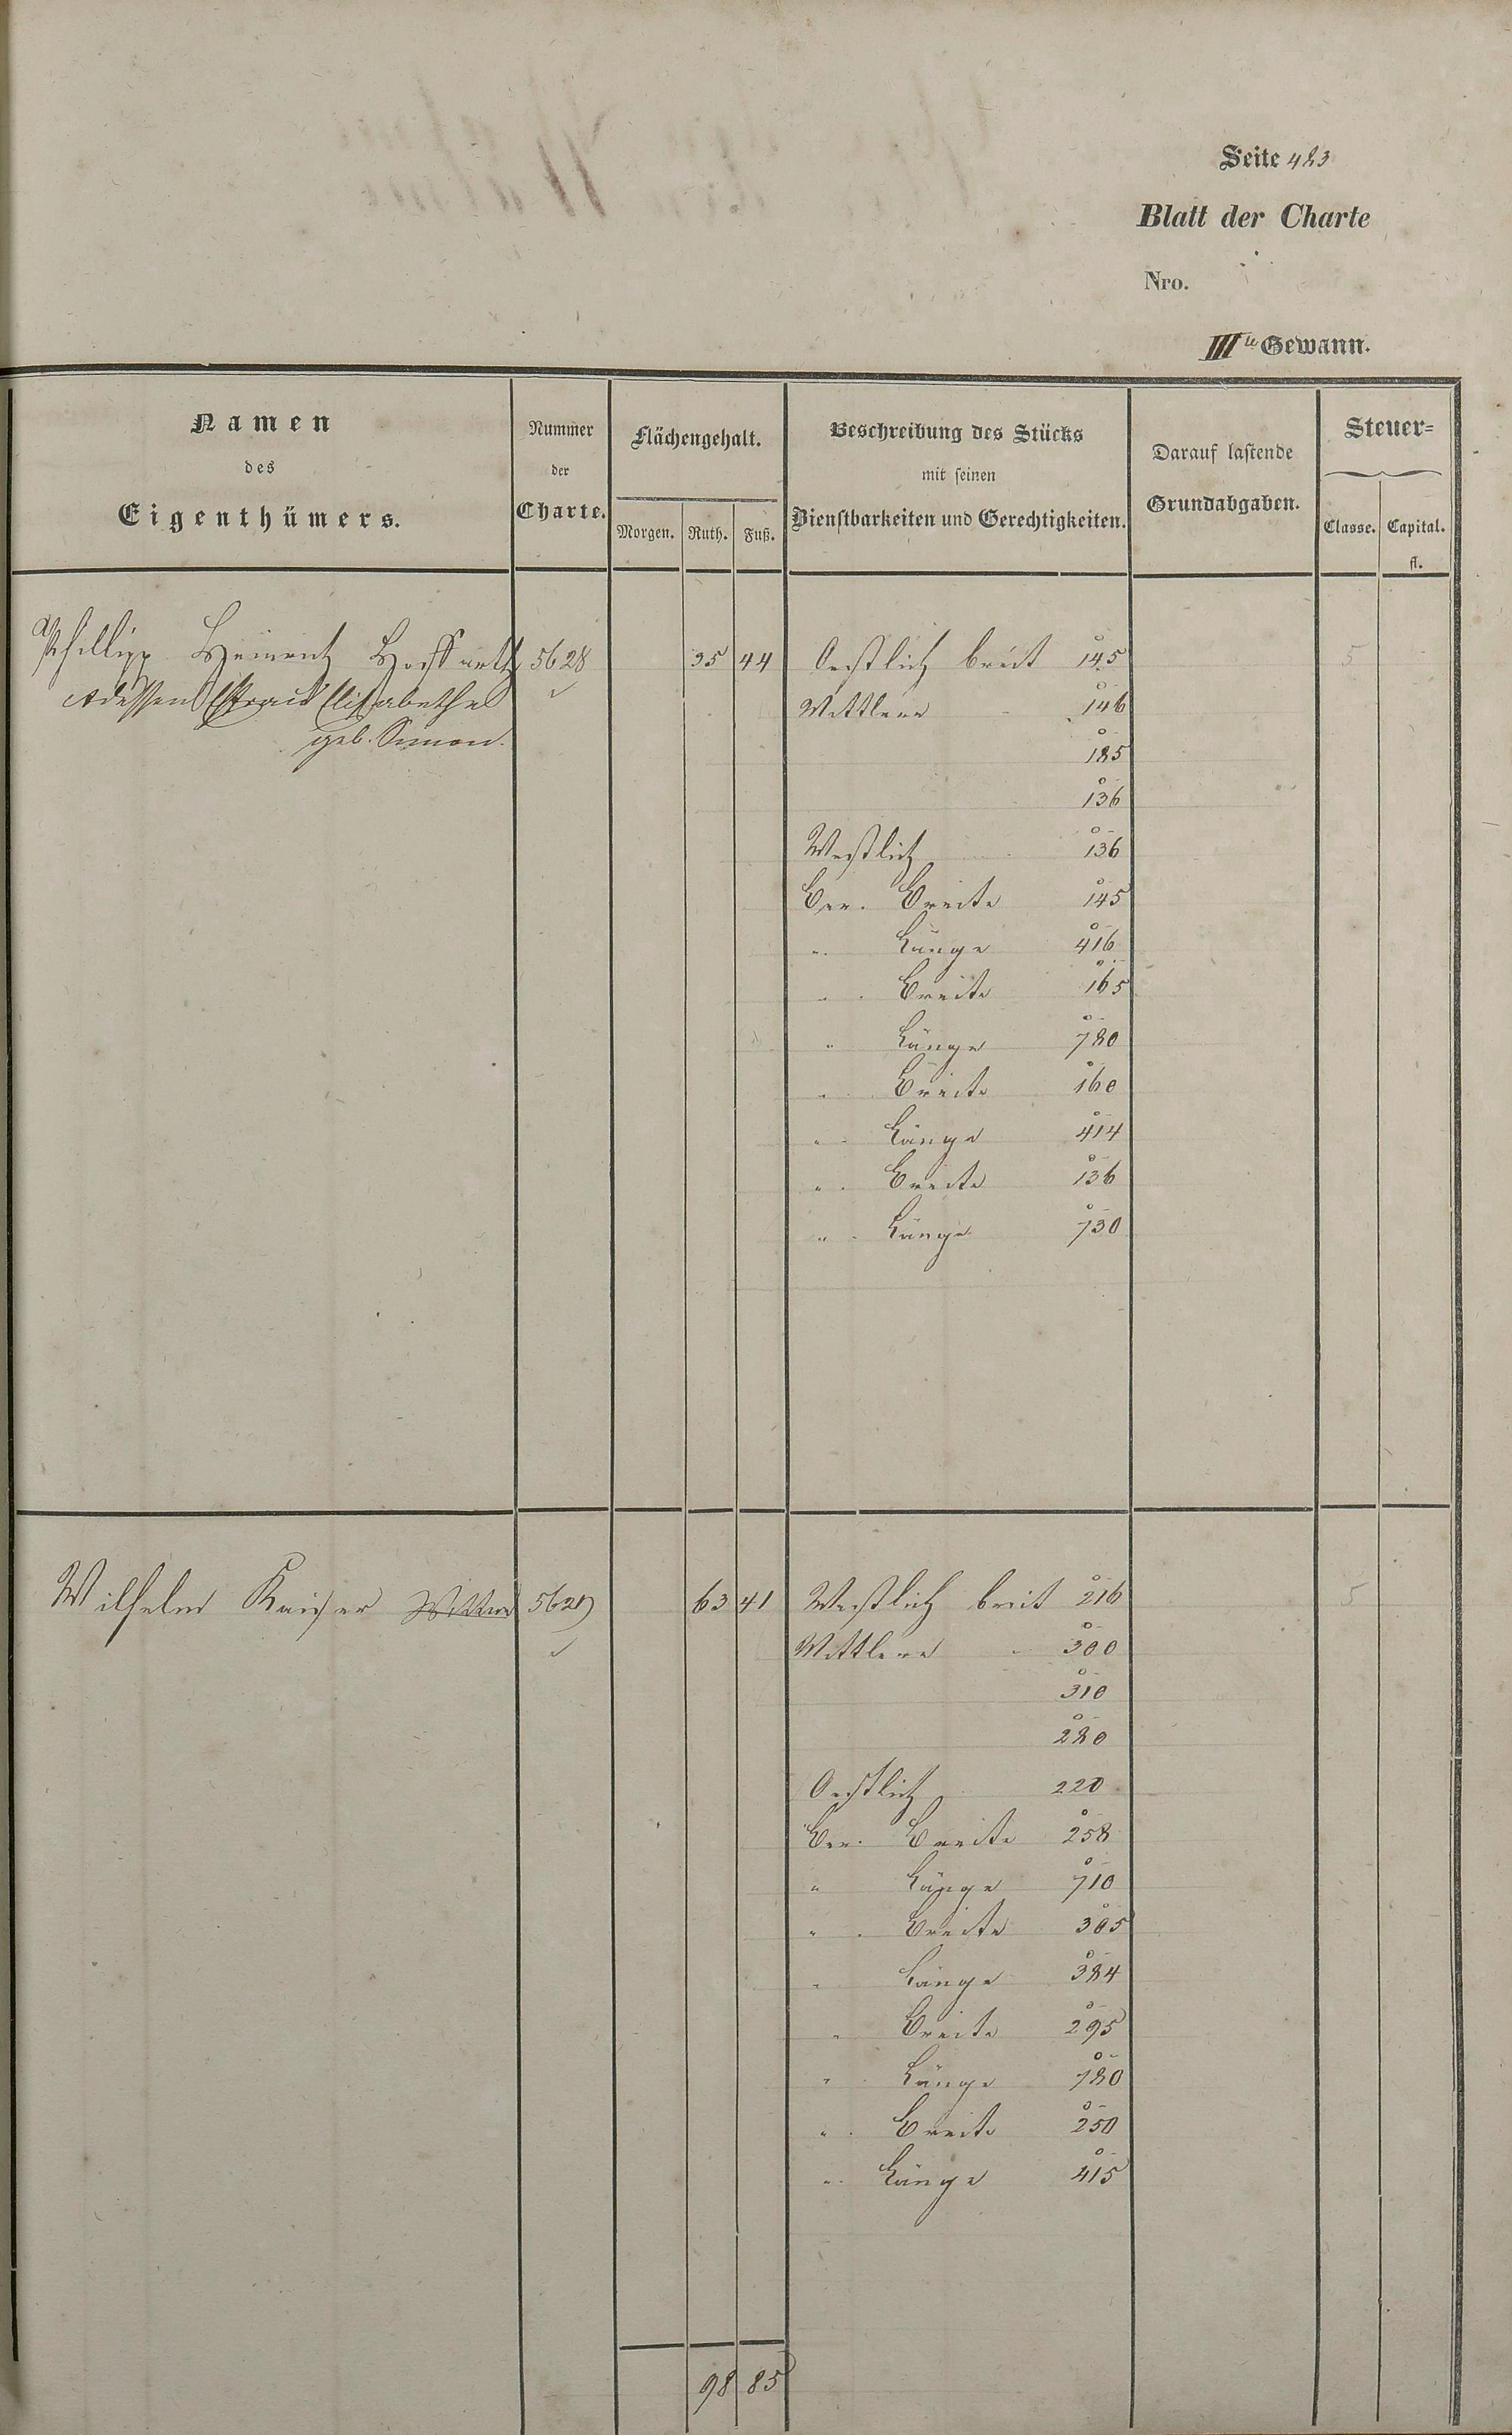 Seite 483
Blatt der Charte
Nro.
III te Gewann.
Namen
des
Eigenthümers.
Nummer
der
Charte.
Flächengehalt.
Morgen. Ruth. Fuß.
Beschreibung des Stücks
mit seinen
Dienstbarkeiten und Gerechtigkeiten.
Darauf lastende
Grundabgaben.
Steuer=
Classe. Capital.
fl.
Philipp Heinrich 5628 35 44 Oestlich breit 145 5
dessen Elisabetha Mittlere 146
geb. Simon. 185
136
Westlich 136
Ber. Breite 145
" Länge 416
" Breite 165
" Länge 780
" Breite 160
" Länge 414
" Breite 136
" Länge 730
Wilhelm Kaiser Wittwe 5629 63 41 Westlich breit 216 5
Mittlere 300
310
280
Oestlich 220
Ber. Breite 258
" Länge 710
" Breite 305
" Länge 384
" Breite 295
" Länge 780
" Breite 250
" Länge 415
98 85